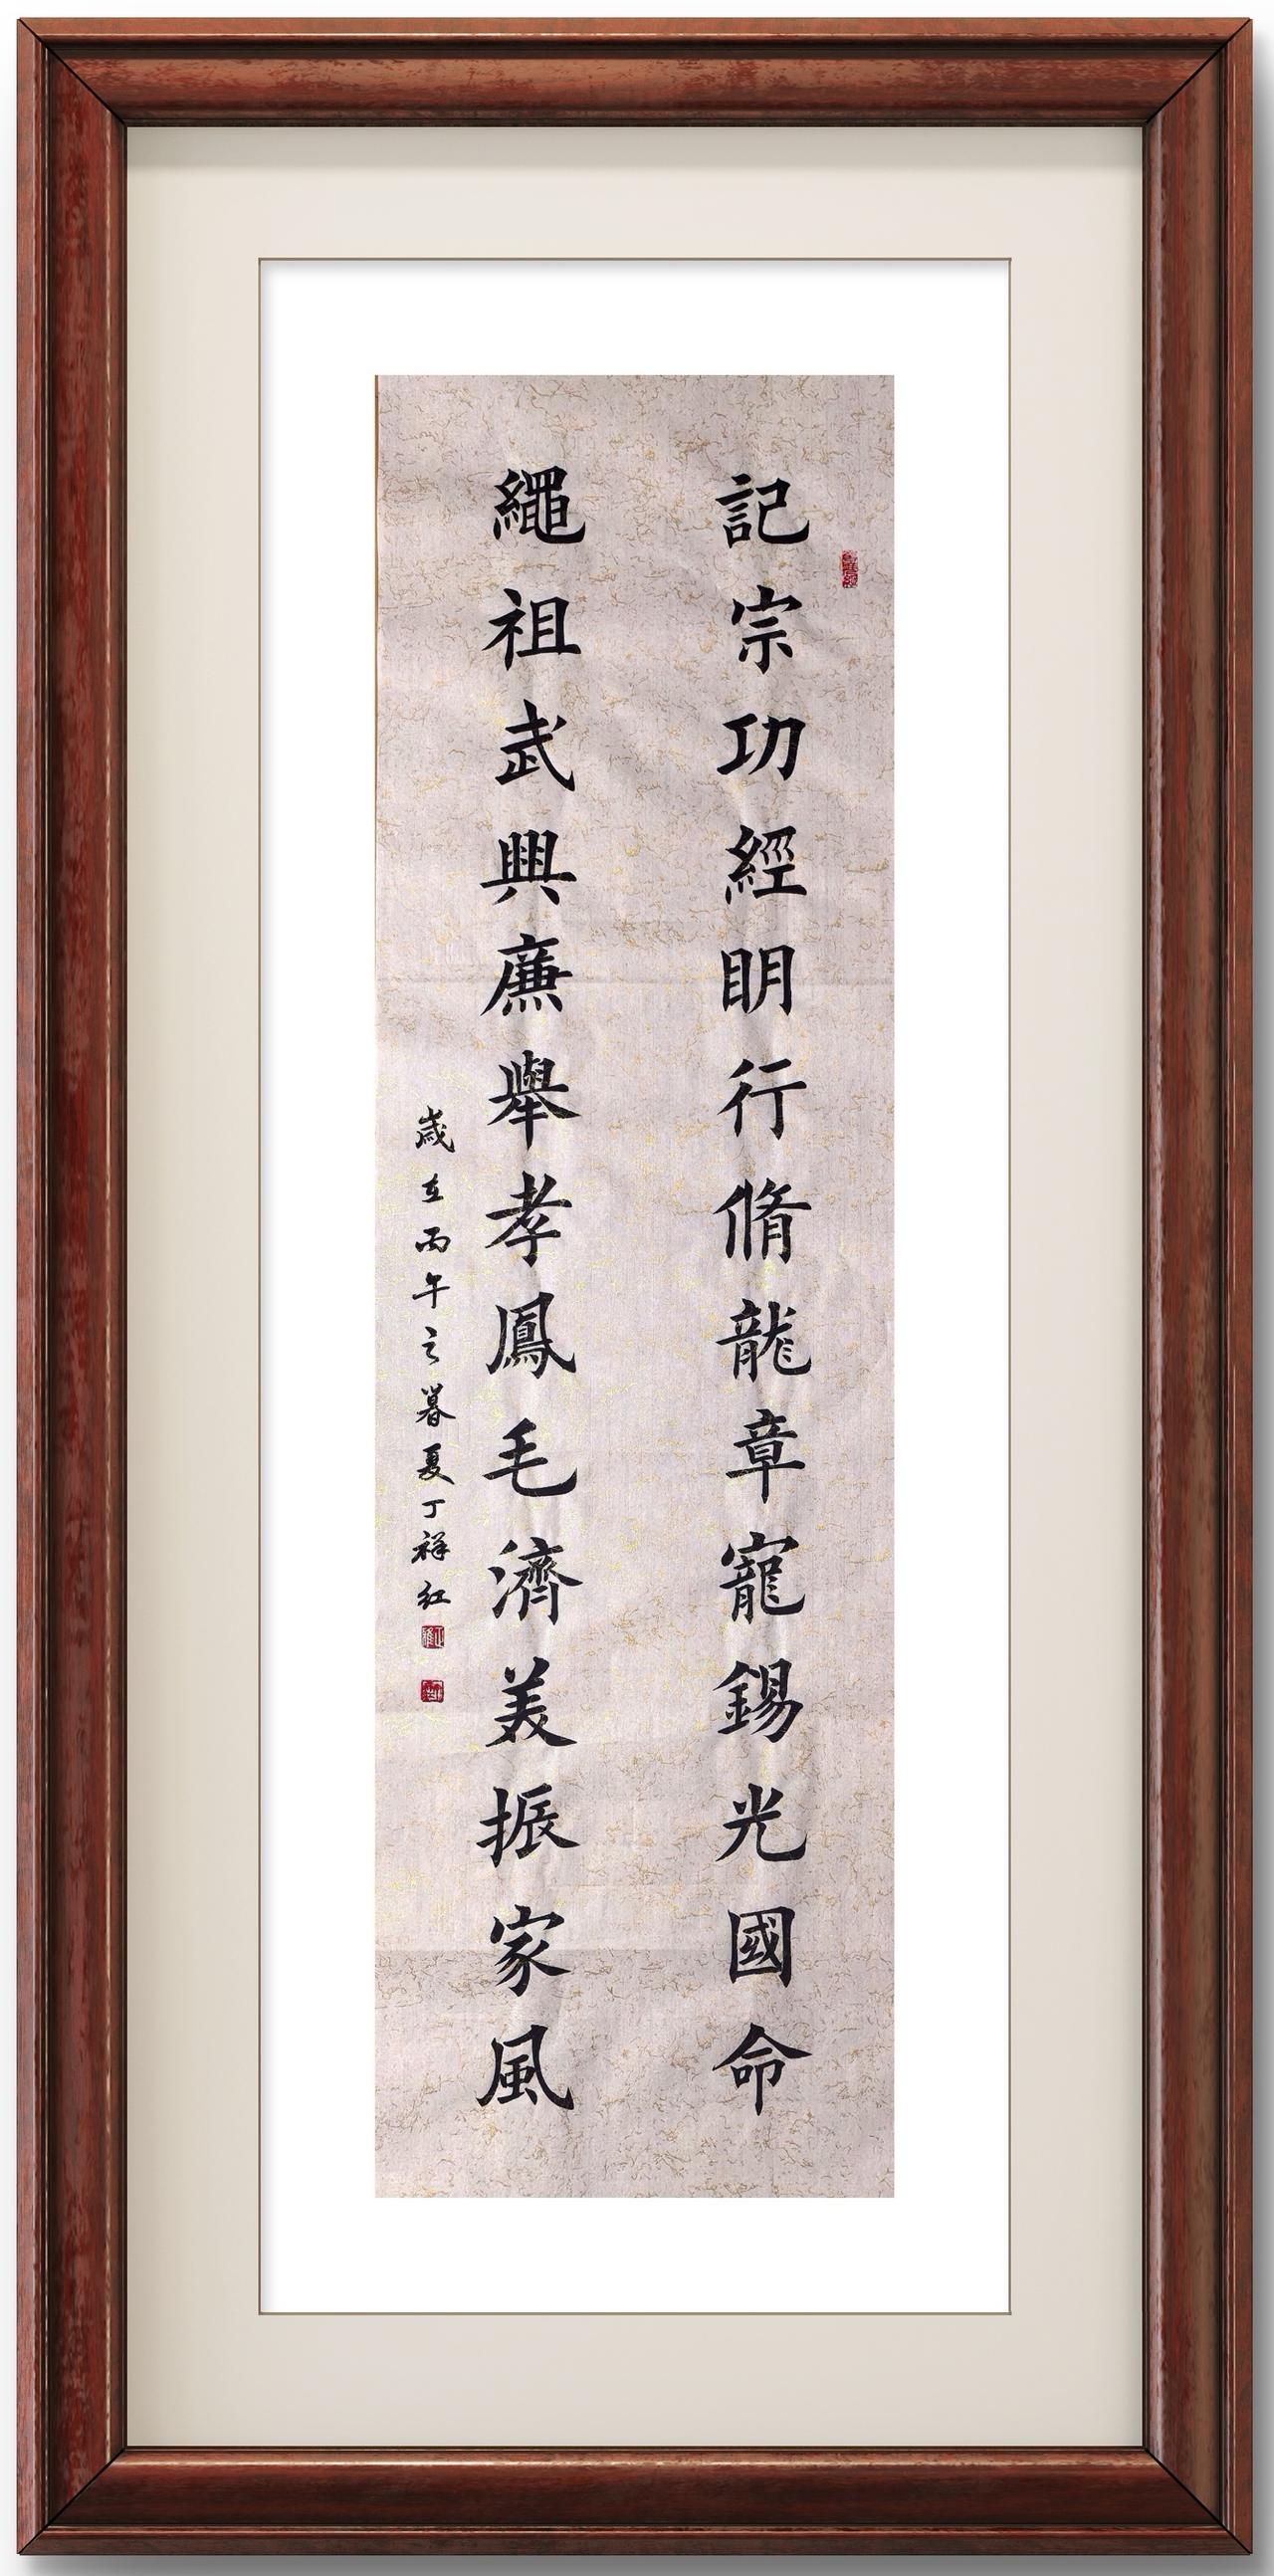 記宗功經明行脩龍章寵錫光國命
繩祖武興廉舉孝鳳毛濟美振家風
歲在丙午之暮夏丁祥紅